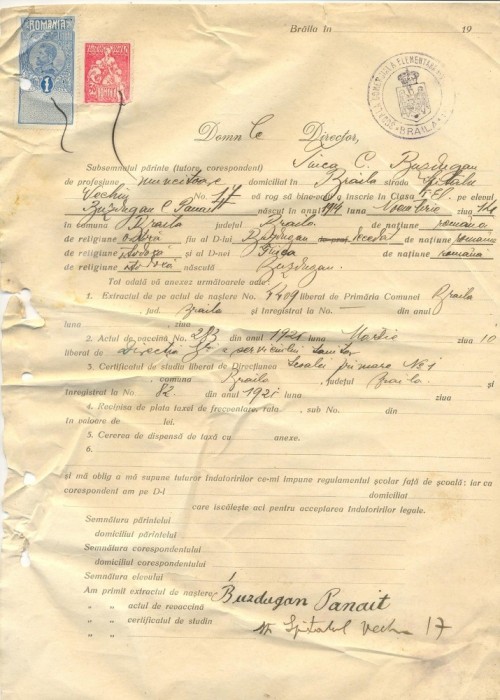 ROMANIA
1
Brăila în 19
BRĂILA
Domnule Director,
Subsemnatul părinte (tutore, corespondent) C. Buzdugan
de profesiune muncitoare domiciliat în Braila strada Spitalu
Vechiu No. 17 vă rog să bine-voiți a înscrie în Clasa pe elevul
Buzdugan C Panait născut în anul luna Noembrie ziua
în comuna Braila județul Braila de națiune romana
de religiune fiu al D-lui Buzdugan de națiune romana
de religiune și al D-nei de națiune româna
de religiune născută Buzdugan.
Tot odată vă anexez următoarele acte:
1. Extractul de pe actul de naștere No. 4409 liberat de Primăria Comunei Braila
jud. Braila și înregistrat la No. — din anul
luna ziua
2. Actul de vaccină No. 283 din anul 1921 luna Martie ziua 10
liberat de Directia serviciului sanitar
3. Certificatul de studii liberat de Direcțiunea Scoalei primare No 1
, comuna Braila , județul Braila și
înregistrat la No. 82 din anul 1921 luna
4. Recipisa de plata taxei de frecventare, rata , sub No. din
în valoare de lei.
5. Cererea de dispensă de taxă cu anexe.
6.
și mă oblig a mă supune tuturor îndatoririlor ce-mi impune regulamentul școlar față de școală: iar ca
corespondent am pe D-l domiciliat
care iscălește aci pentru acceptarea îndatoririlor legale.
Semnătura părintelui
domiciliul părintelui
Semnătura corespondentului
domiciliul corespondentului
Semnătura elevului
Am primit extractul de naștere Buzdugan Panait
„ „ actul de revaccină Spitalul Vechiu 17
„ „ certificatul de studii